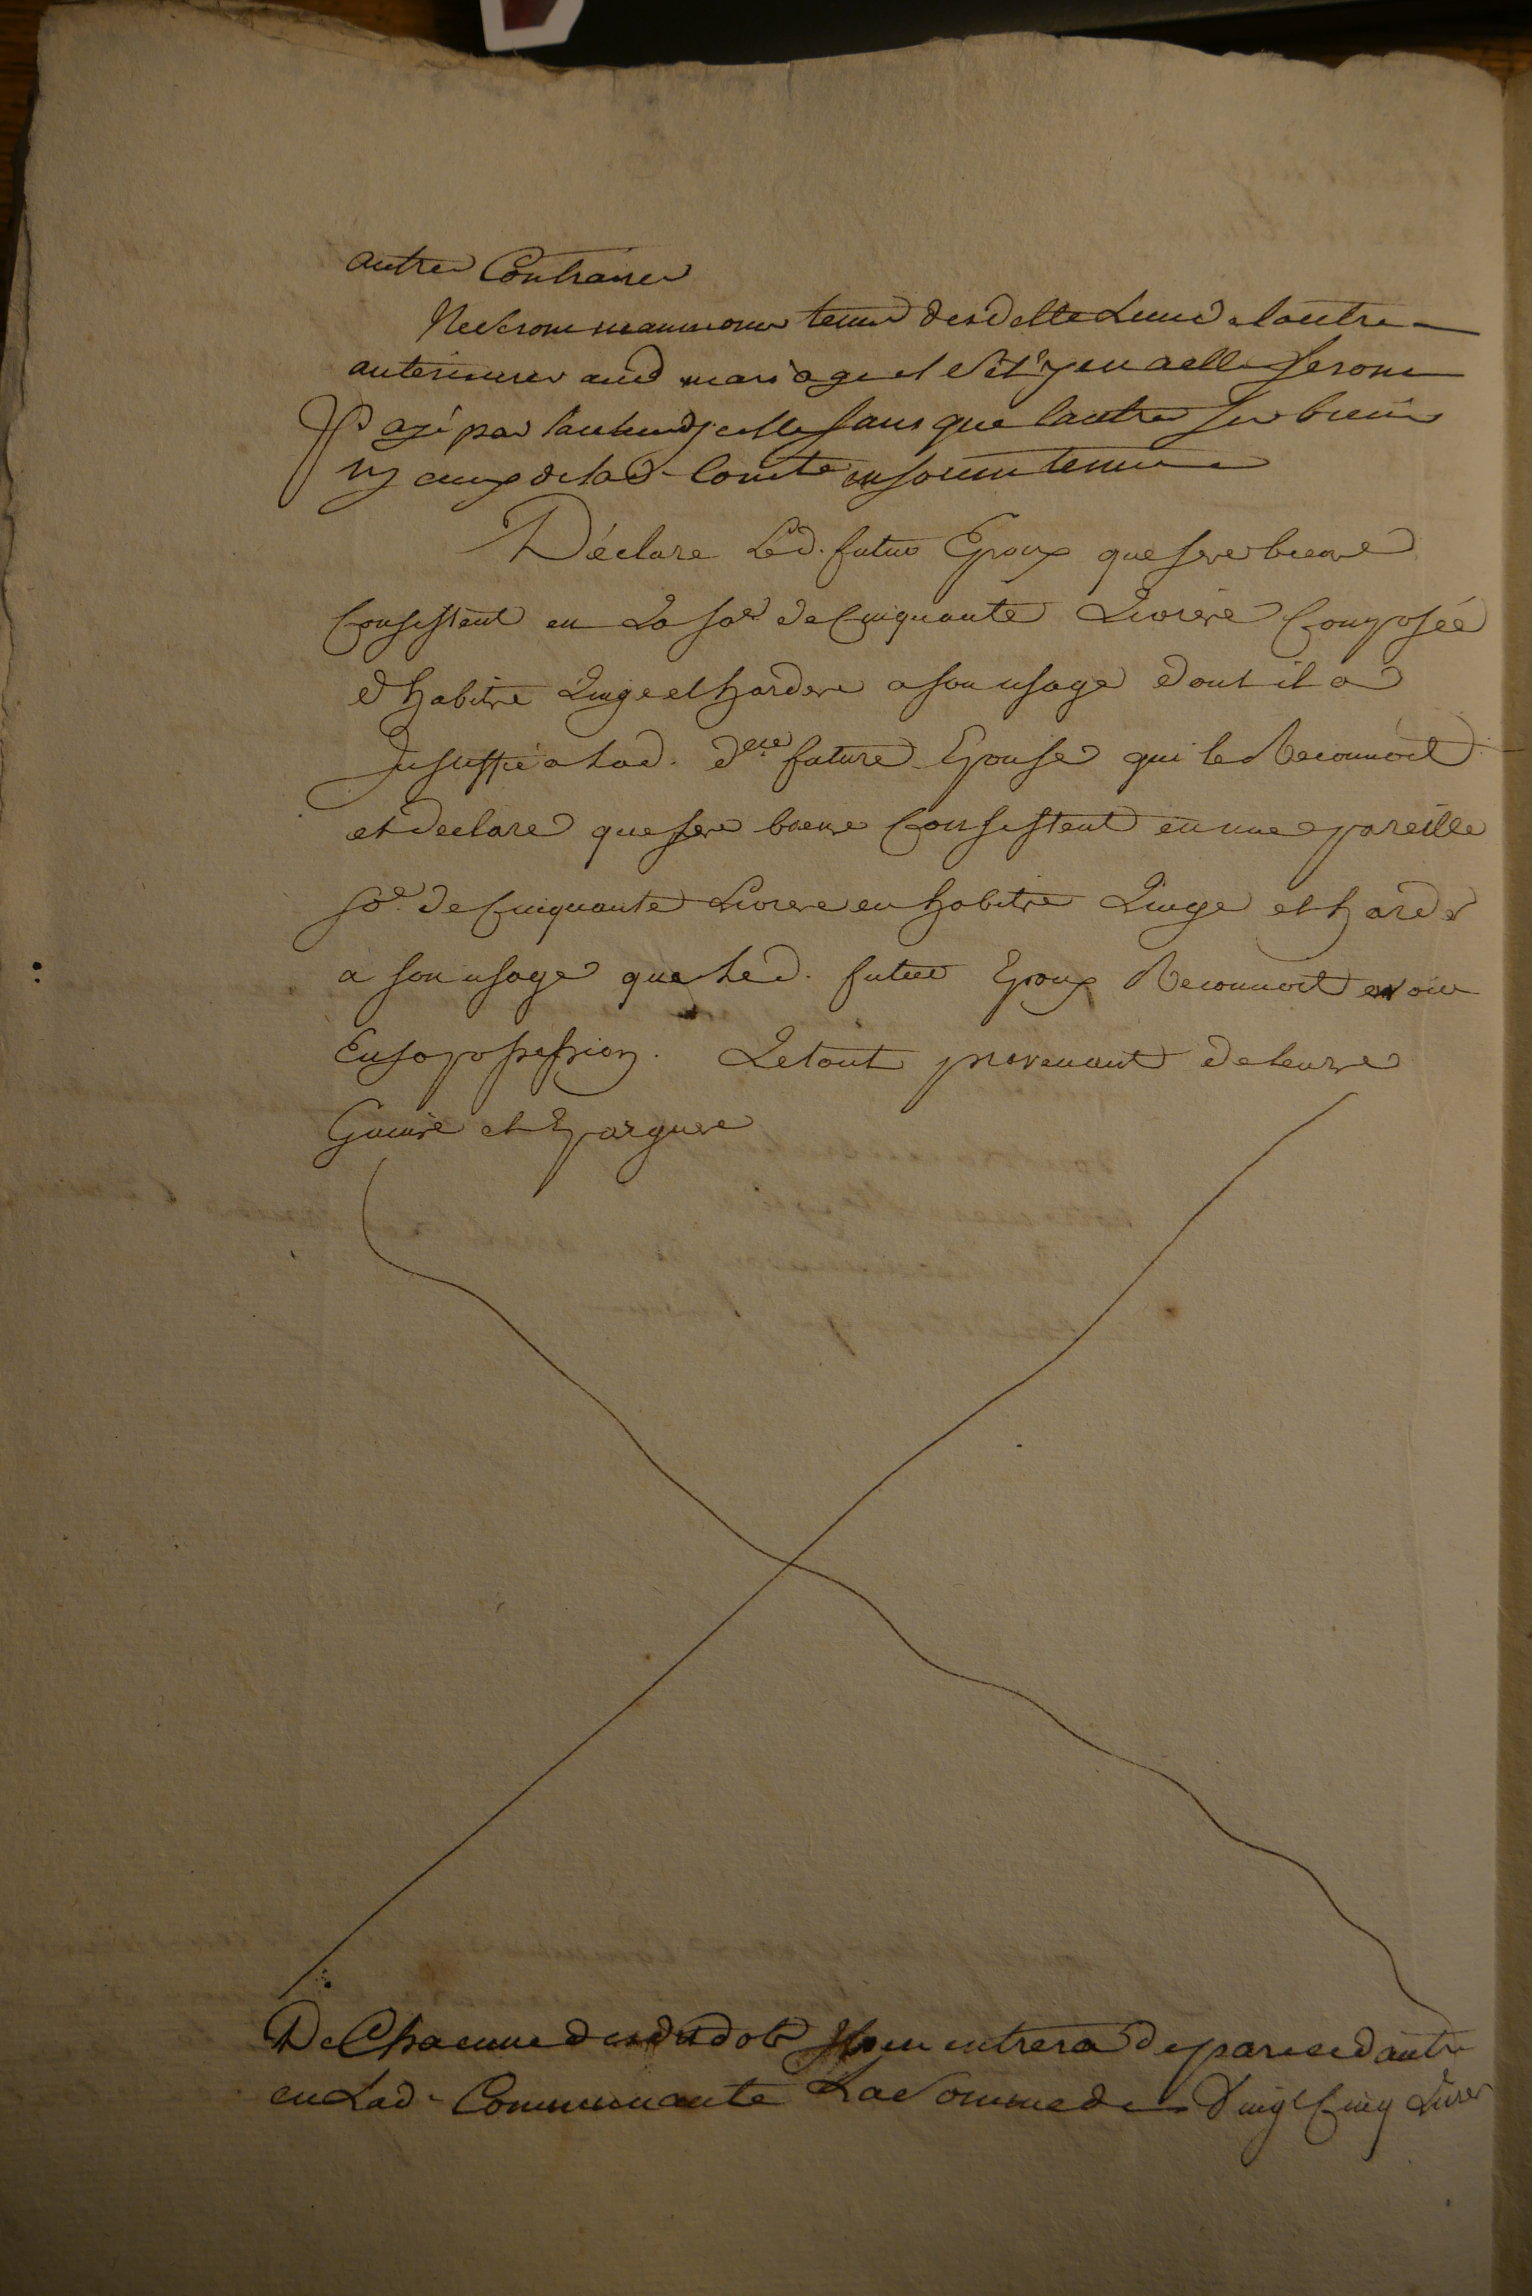 autres Contraires
Ne seront neanmoins tenus des dettes Lun de lautre
anterieures aud mariage et s'il y en a elles seront
Payé par lauteur d'icelles sans que lautre ses biens
ny ceux de lad. Com.te en soient tenus
Déclare Led. futur Epoux que ses biens
Consistent en La so.e de Cinquante Livres Composée
d'habits Linge et hardes a son usage dont il a
Justiffié a Lad. d.elle future Epouse qui le Reconnoit
et declare que ses biens Consistent en une pareille
so.e de Cinquante Livres en habits Linge et hardes
a son usage que Led. futur Epoux Reconnoit avoir
En sa possession. Le tout provenant de leurs
Gains et Epargnes
De Chacune desd dots Il en entrera de part et dautre
en Lad. Communauté La Somme de Vingt Cinq Livres